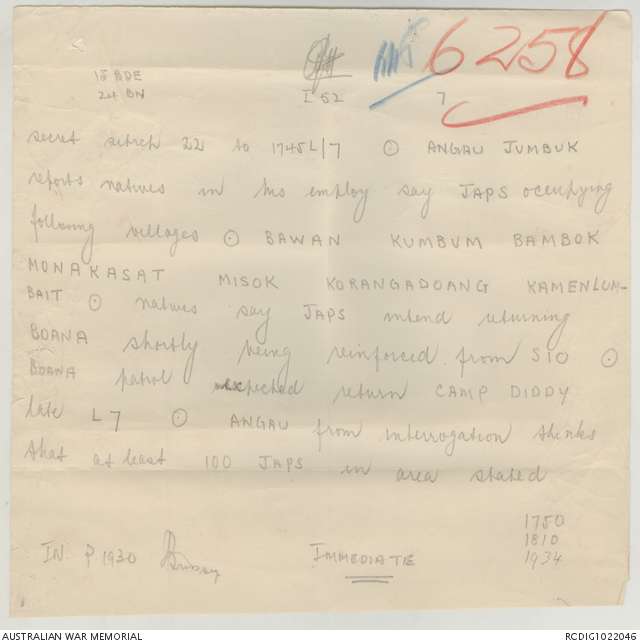 6258
15 BDE
24 BN
I 52
7
secret sitrep 22 to 1745L/7 ⊙ ANGAU JUMBUK
reports natives in his employ say JAPS occupying
following villages ⊙ BAWAN KUMBUM BAMBOK
MONAKASAT MISOK KORANGADOANG KAMENLUM-
BAIT ⊙ natives say JAPS intend returning
BOANA shortly being reinforced from SIO ⊙
BOANA patrol expected return CAMP DIDDY
late L7 ⊙ ANGAU from interrogation thinks
that at least 100 JAPS in area stated
1750
1810
1934
IN P 1930
IMMEDIATE
AUSTRALIAN WAR MEMORIAL
RCDIG1022046